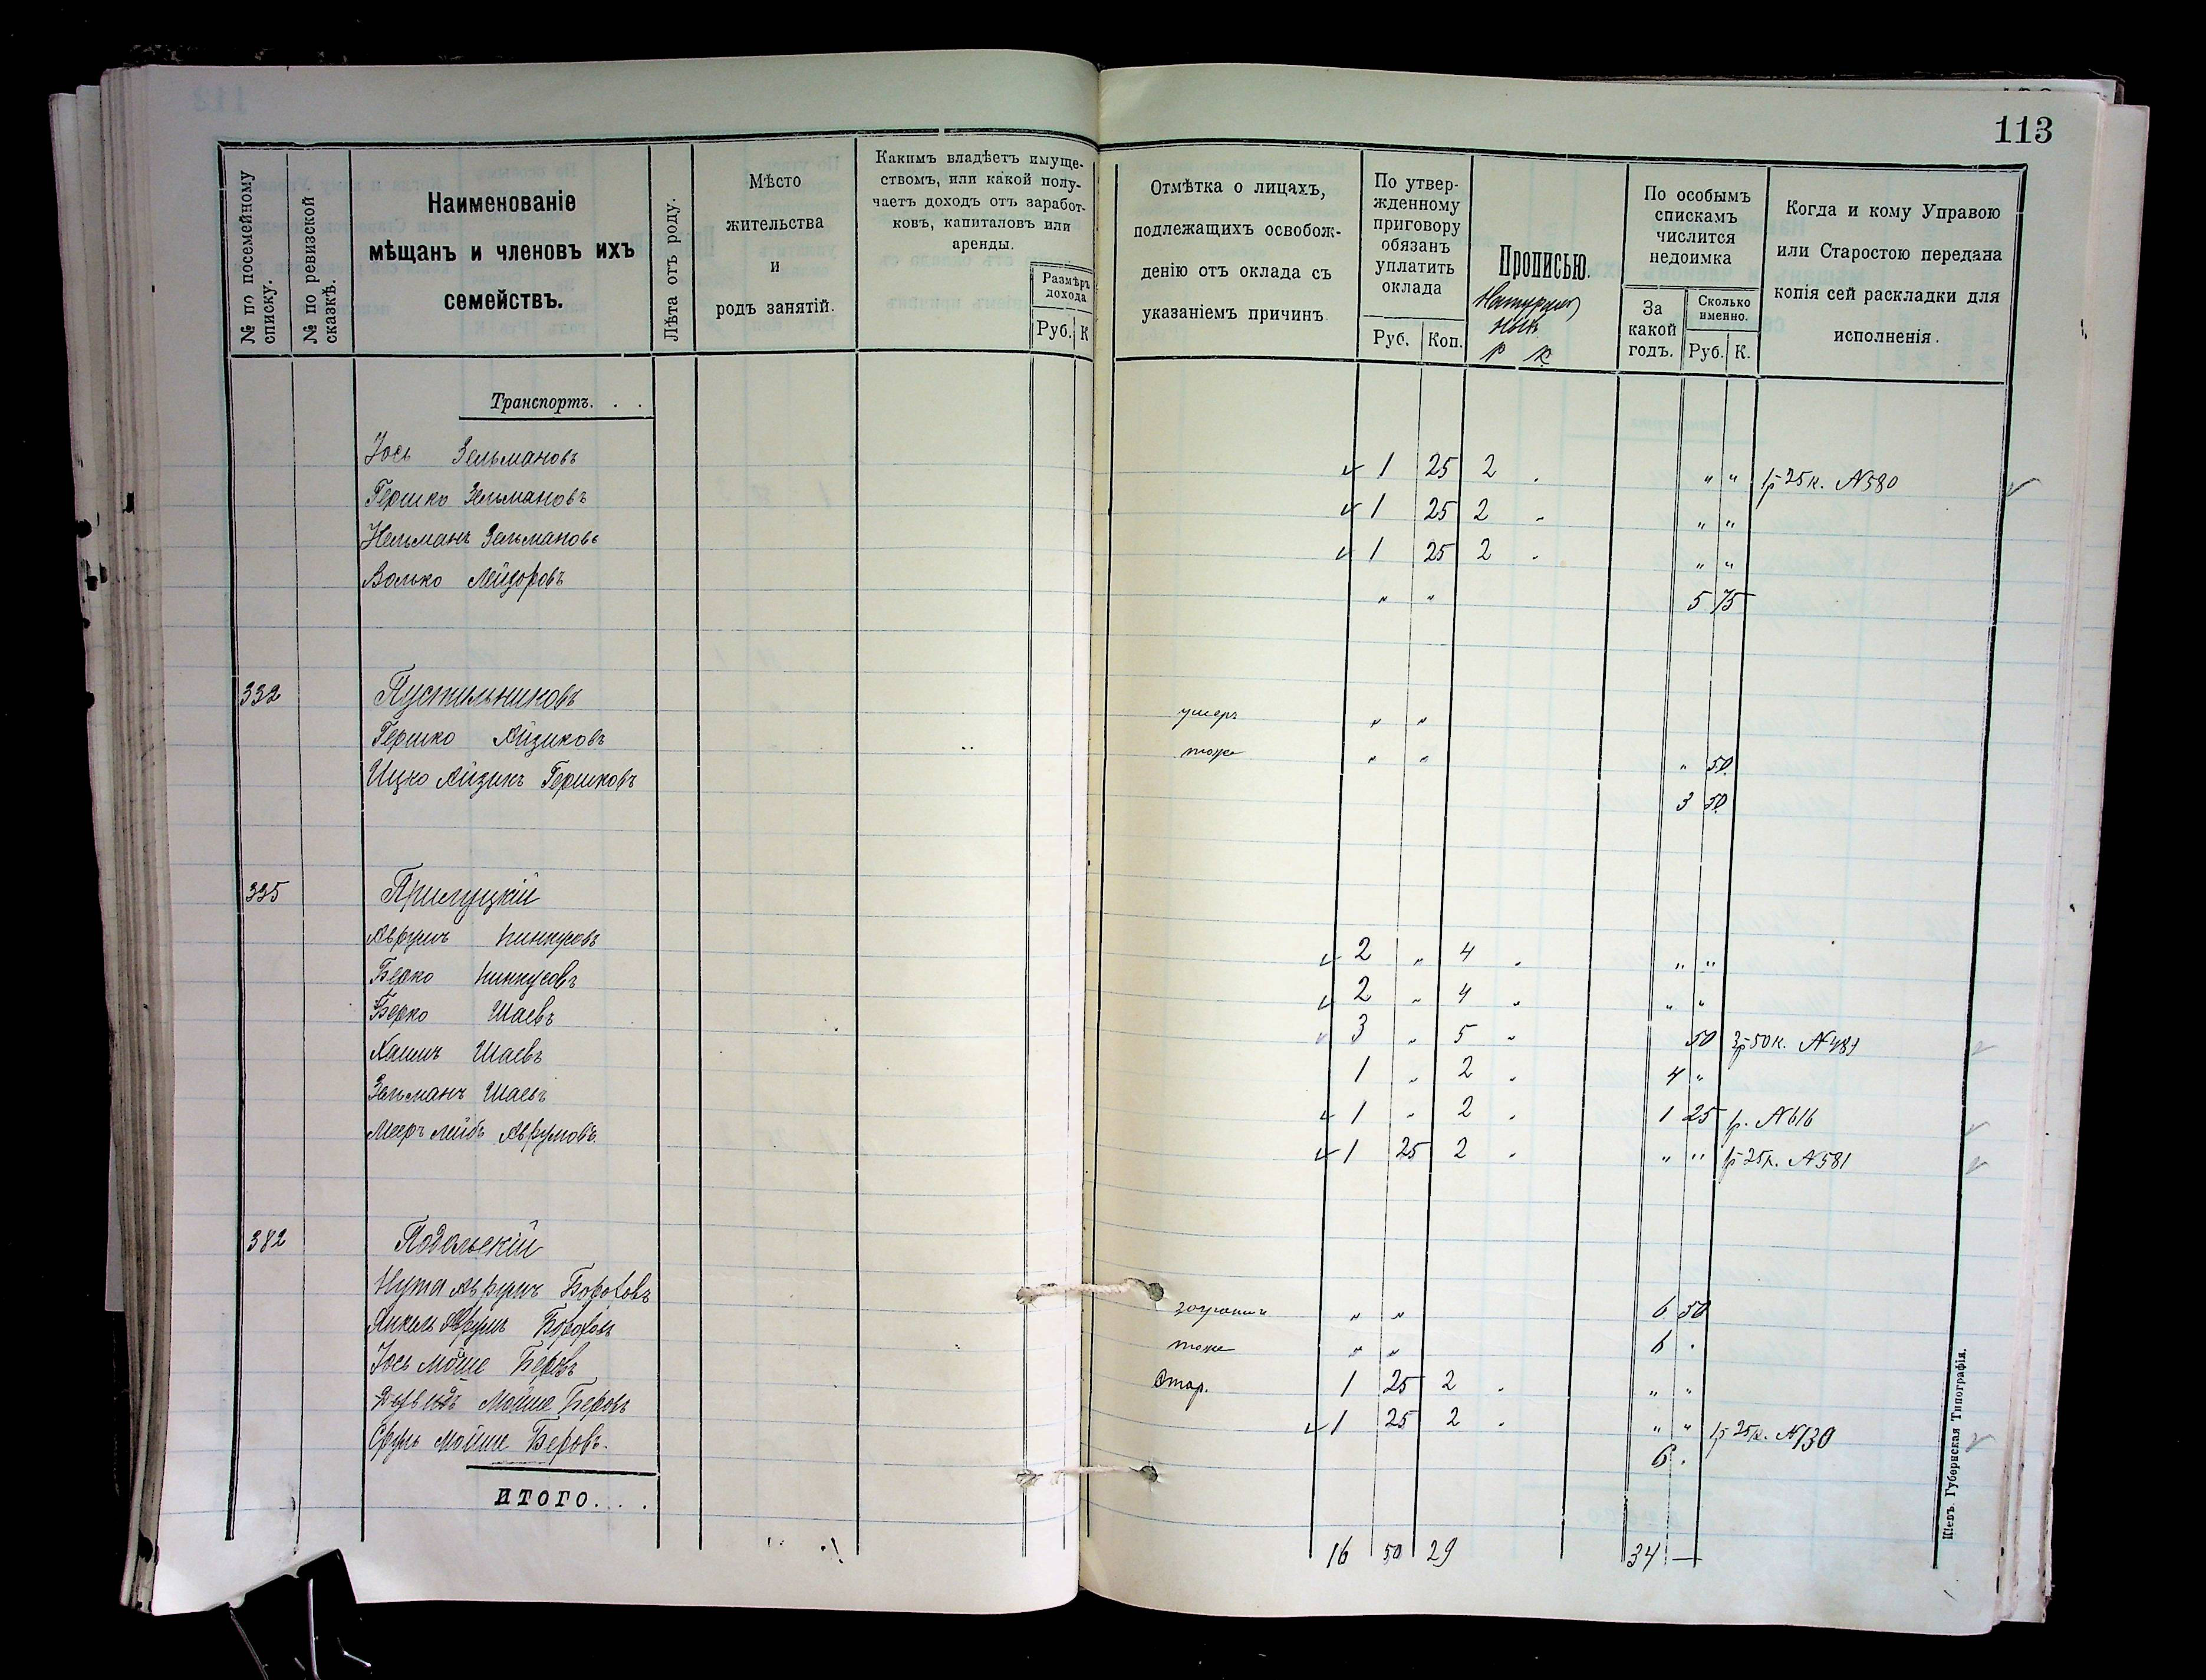 113
№ по посемейному списку.
№ по ревизской сказкѣ.
Наименованіе
мѣщанъ и членовъ ихъ
семействъ.
Лѣта отъ роду.
Мѣсто
жительства
и
родъ занятій.
Какимъ владѣетъ имуще-
ствомъ, или какой полу-
чаетъ доходъ отъ заработ-
ковъ, капиталовъ или
аренды.
Размѣръ
дохода
Руб. К
Отмѣтка о лицахъ,
подлежащихъ освобож-
денію отъ оклада съ
указаніемъ причинъ
По утвер-
жденному
приговору
обязанъ
уплатить
оклада
Руб. Коп.
Прописью.
Р К
По особымъ
спискамъ
числится
недоимка
За
какой
годъ.
Сколько
именно.
Руб. К.
Когда и кому Управою
или Старостою передана
копія сей раскладки для
исполненія.
Транспортъ. . .
Іось Зельмановъ 1 25 2 " " " 1р 25к. N 580
Гершко Зельмановъ 1 25 2 " " "
Зельмановъ 1 25 2 " " "
Волько Лейзоровъ " " 5 75
332 Пустильниковъ
Гершко Айзиковъ умеръ " " " 50
Ицко Айзикъ Гершковъ тоже " " 3 50
335 Прилуцкій
Аврумъ Пинкусовъ 2 " 4 " " "
Берко Пинкусовъ 2 " 4 " " "
Берко Шаевъ 3 " 5 " 50 3р 50к. N 489
Хаимъ Шаевъ 1 " 2 " 4 "
Зельманъ Шаевъ 1 " 2 " 1 25 1р. N 616
Мееръ Лейбъ Аврумовъ 1 25 2 " " " 1р 25к. N 581
382 Подольскій
Нута Аврумъ Боруховъ " " 6 50
Янкель Аврумъ Боруховъ тоже " " 6 "
Іось Мойше Беровъ Стар. 1 25 2 " " "
Мойше Беровъ 1 25 2 " " " 1р 25к. N 130
Сруль Мойше Беровъ 6 "
ИТОГО. . . 16 50 29 34 —
Кіевъ. Губернская Типографія.